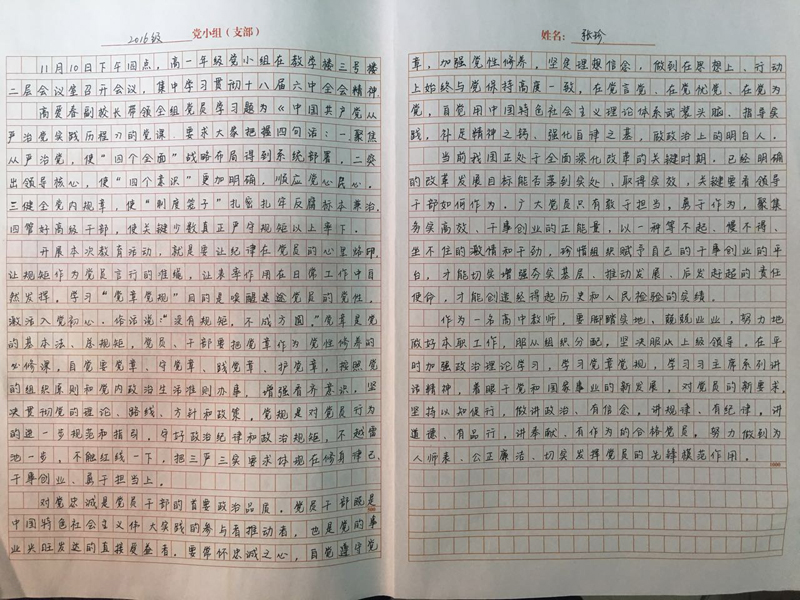 2016级 党小组（支部）
11月10日下午四点，高一年级党小组在教学楼三号楼
二层会议室召开会议，集中学习贯彻十八届六中全会精神。
高夏春副校长带领全组党员学习题为《中国共产党从
严治党实践历程》的党课，要求大家把握四句话：一聚焦
从严治党，使“四个全面”战略布局得到系统部署，二突
出领导核心，使“四个意识”更加明确，顺应党心民心，
三健全党内规章，使“制度笼子”扎密扎牢反腐标本兼治，
四管好高级干部，使关键少数真正严守规矩以上率下。
开展本次教育活动，就是要让纪律在党员的心里烙印，
让规矩作为党员言行的准绳，让表率作用在日常工作中自
然发挥，学习“党章党规”目的是唤醒迷途党员的党性，
激活入党初心。俗话说：“没有规矩，不成方圆。”党章是党
的基本法、总规矩，党员、干部要把党章作为党性修养的
必修课，自觉要党章、守党章、践党章、护党章，按照党
的组织原则和党内政治生活准则办事，增强看齐意识，坚
决贯彻党的理论、路线、方针和政策，党规是对党员行为
的进一步规范和指引，守好政治纪律和政治规矩，不越雷
池一步，不触红线一下，把三严三实要求体现在修身律己、
干事创业、勇于担当上。
对党忠诚是党员干部的首要政治品质。党员干部既是
中国特色社会主义伟大实践的参与者推动者，也是党的事
业兴旺发达的直接受益者，要常怀忠诚之心，自觉遵守党
姓名：张珍
章，加强党性修养，坚定理想信念，做到在思想上、行动
上始终与党保持高度一致，在党言党、在党优党、在党为
党，自觉用中国特色社会主义理论体系武装头脑、指导实
践，补足精神之钙，强化自律之基，做政治上的明白人。
当前我国正处于全面深化改革的关键时期，已经明确
的改革发展目标能否落到实处、取得实效，关键要看领导
干部如何作为，广大党员只有敢于担当，勇于作为，聚集
务实高效、干事创业的正能量，以一种等不起、慢不得、
坐不住的激情和干劲，珍惜组织赋予自己的干事创业的平
台，才能切实增强夯实基层、推动发展、后发赶超的责任
使命，才能创造经得起历史和人民检验的实绩。
作为一名高中教师，要脚踏实地、兢兢业业，努力地
做好本职工作，服从组织分配，坚决服从上级领导。在平
时加强政治理论学习，学习党章党规，学习习主席系列讲
话精神，着眼于党和国家事业的新发展，对党员的新要求，
坚持以知促行，做讲政治、有信念，讲规律、有纪律，讲
道德、有品行，讲奉献、有作为的合格党员，努力做到为
人师表、公正廉洁、切实发挥党员的先锋模范作用。